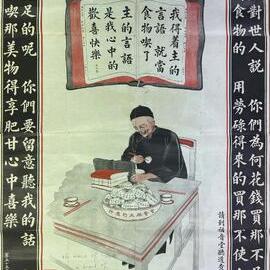 對世人說 你們為何花錢買那不
食物的 用勞碌得來的買那不使
我得着主的
言語就當
食物喫了
主的言語
是我心中的
歡喜快樂
請到福音堂聽道
足的呢 你們要留意聽我的話
喫那美物得享肥甘心中喜樂